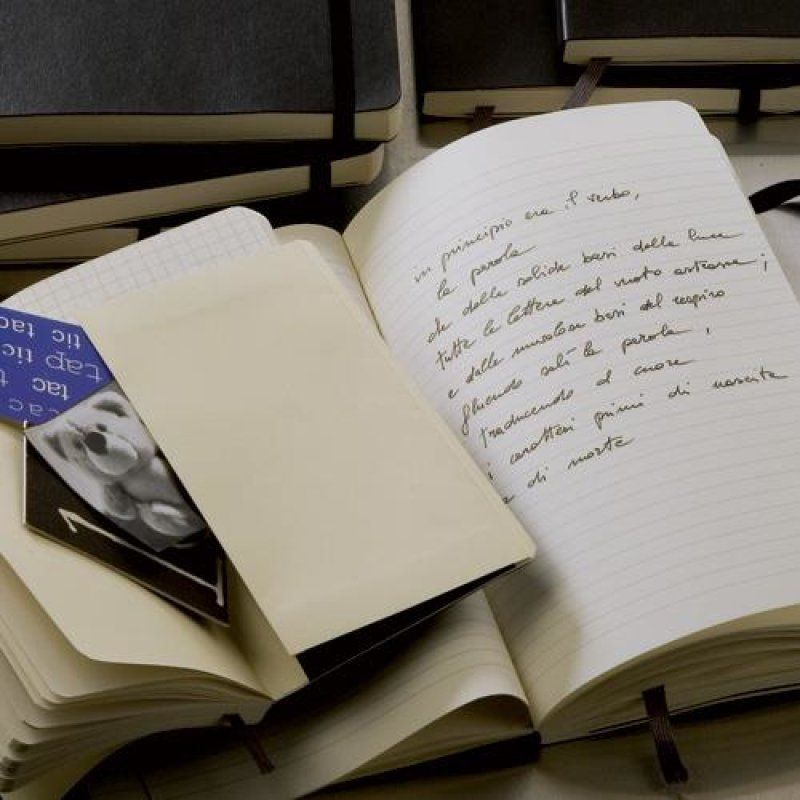 in principio era il verbo,
la parola
che dalle solide basi della luce
tutte le lettere del vuoto astrasse;
e dalle nuvolose basi del respiro
fluendo salì la parola,
traducendo al cuore
i caratteri primi di nascita
e di morte
tic tac
tap tic
tac
1